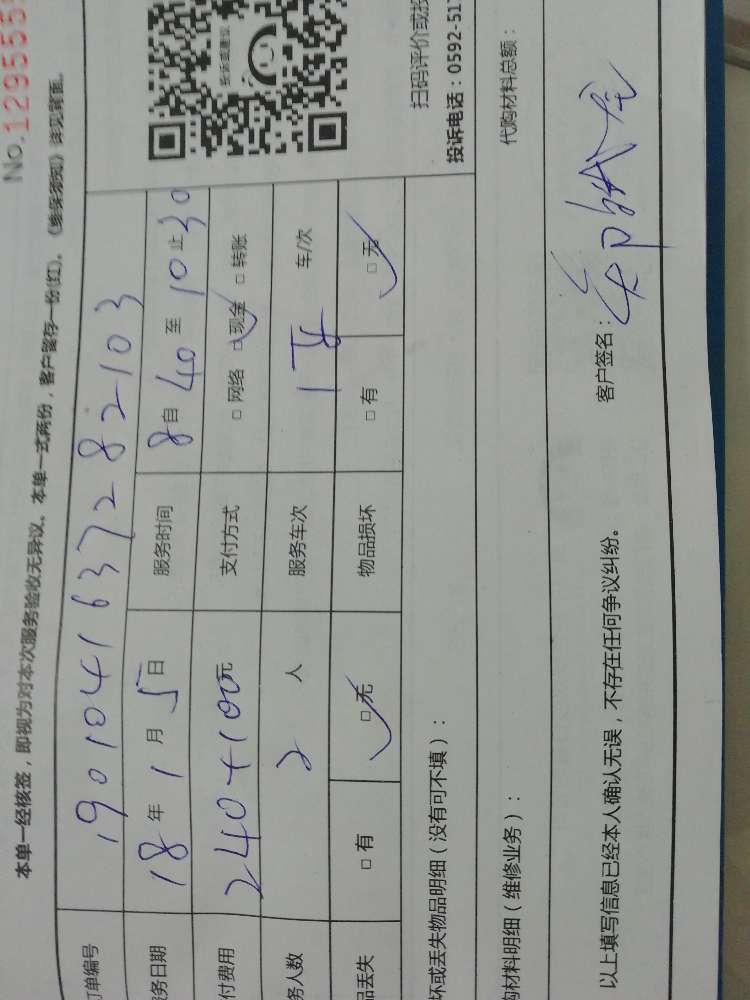 No.1295555
本单一经核签，即视为对本次服务验收无异议。本单一式两份，客户留存一份(红)。《维保须知》详见背面。
订单编号 190104163728 2103
务日期 18年1月5日 服务时间 8自40至10止30
付费用 240+100元 支付方式 □网络 □现金 □转账
务人数 2人 服务车次 1车 车/次
品丢失 □有 □无 物品损坏 □有 □无
扫码评价或投
投诉电话：0592-517
坏或丢失物品明细（没有可不填）：
购材料明细（维修业务）：
代购材料总额：
以上填写信息已经本人确认无误，不存在任何争议纠纷。
客户签名：